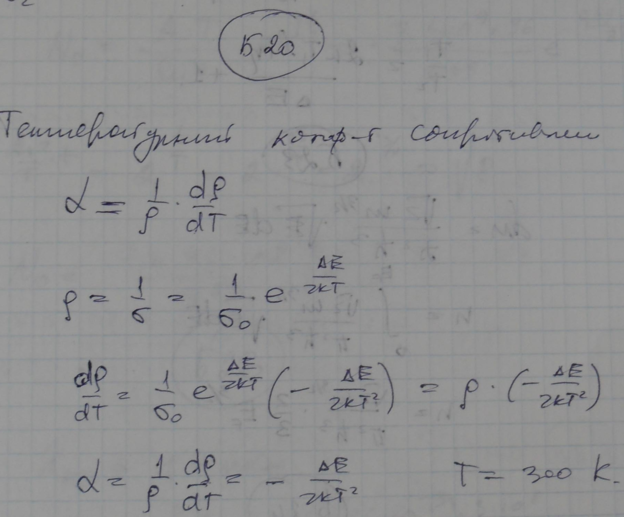 Б 20.
Температурный коэф-т сопротивлен
α = 1/ρ · dρ/dT
ρ = 1/σ = 1/σ₀ · e^(ΔE/2kT)
dρ/dT = 1/σ₀ e^(ΔE/2kT) (- ΔE/2kT²) = ρ · (- ΔE/2kT²)
α = 1/ρ · dρ/dT = - ΔE/2kT² T = 300 K.